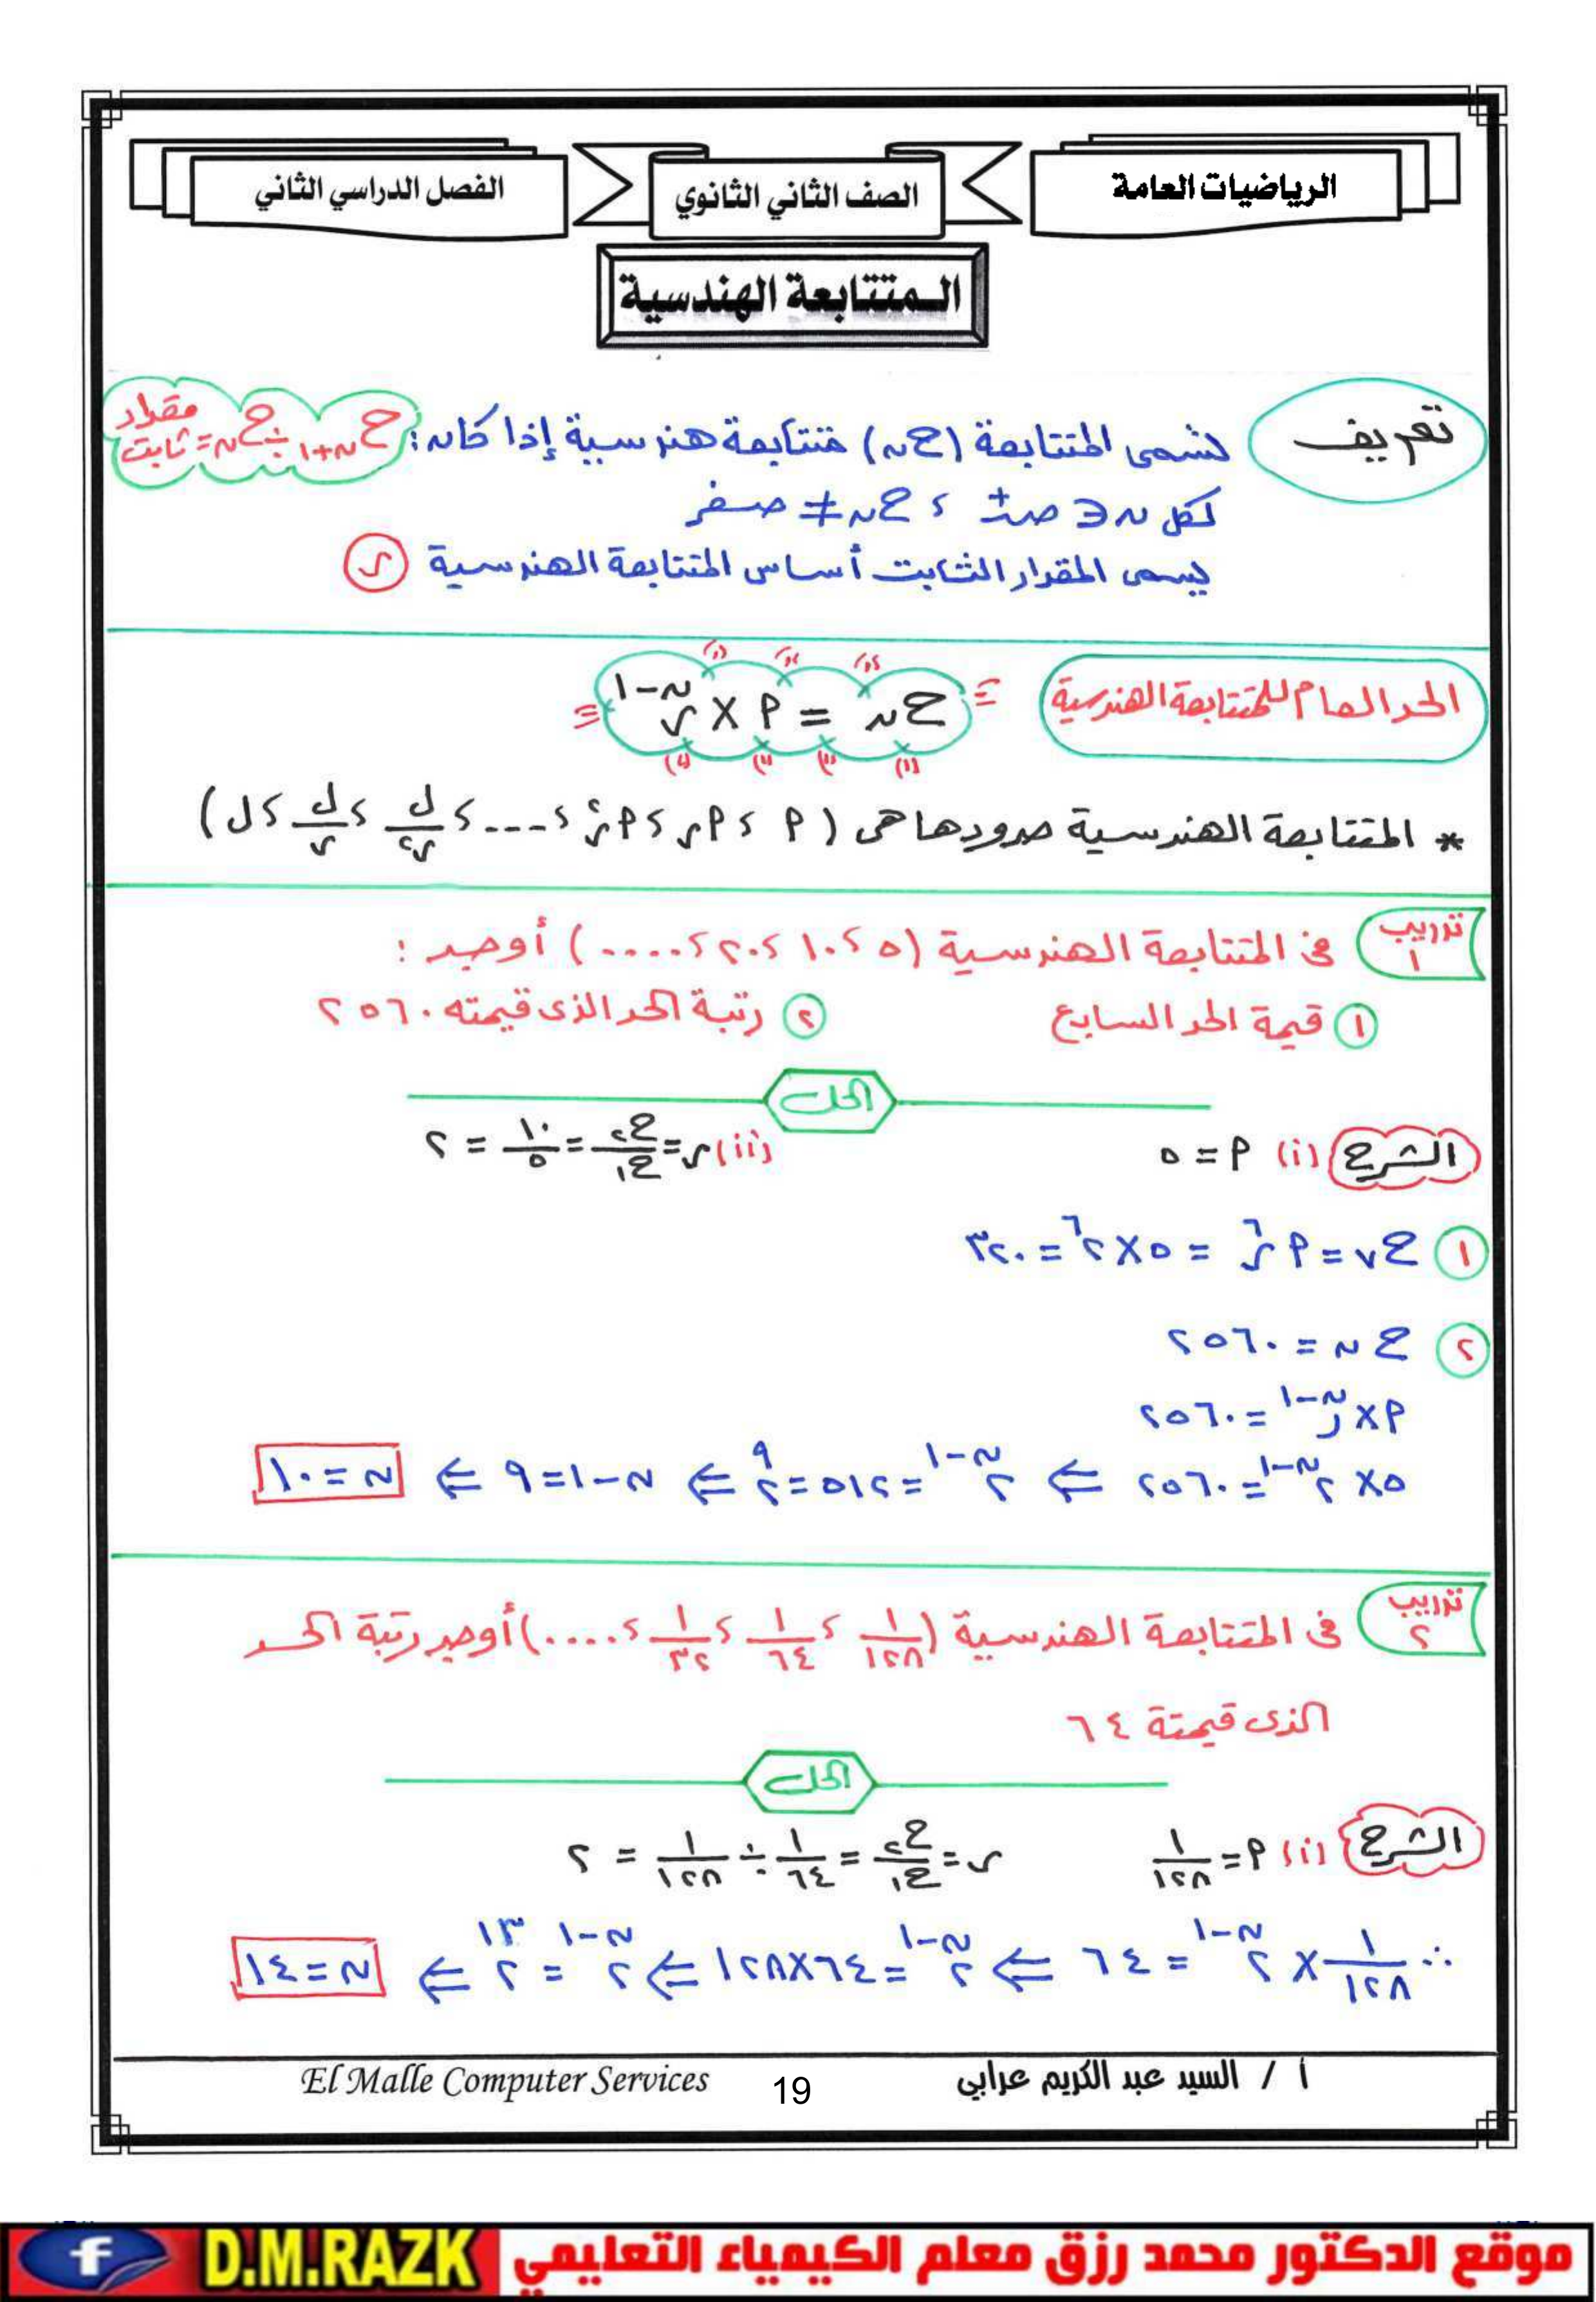 الرياضيات العامة
الصف الثاني الثانوي
الفصل الدراسي الثاني
المتتابعة الهندسية
تعريف
تسمى المتتابعة (ح ن) متتابعة هندسية إذا كان: ح ن+١ ÷ ح ن = مقدار ثابت
لكل ن ∈ ص+ ، ح ن ≠ صفر
يسمى المقدار الثابت أساس المتتابعة الهندسية (ر)
الحد العام للمتتابعة الهندسية ≡ ح ن = أ × ر^(ن-١) ≡
* المتتابعة الهندسية حدودها هى ( أ ، أر ، أر^٢ ، --- ، ل/ر^٢ ، ل/ر ، ل )
تدريب ١ فى المتتابعة الهندسية (٥ ، ١٠ ، ٢٠ ، .....) أوجد :
① قيمة الحد السابع ② رتبة الحد الذى قيمته ٢٥٦٠
الحل
الشرح (i) أ = ٥ (ii) ر = ح٢/ح١ = ١٠/٥ = ٢
① ح٧ = أ ر^٦ = ٥ × ٢^٦ = ٣٢٠
② ح ن = ٢٥٦٠
أ × ر^(ن-١) = ٢٥٦٠
٥ × ٢^(ن-١) = ٢٥٦٠ ⇐ ٢^(ن-١) = ٥١٢ = ٢^٩ ⇐ ن-١ = ٩ ⇐ ن = ١٠
تدريب ٢ فى المتتابعة الهندسية (١/١٢٨ ، ١/٦٤ ، ١/٣٢ ، ....) أوجد رتبة الحد
الذى قيمتة ٦٤
الحل
الشرح (i) أ = ١/١٢٨ ر = ح٢/ح١ = ١/٦٤ ÷ ١/١٢٨ = ٢
∴ ١/١٢٨ × ٢^(ن-١) = ٦٤ ⇐ ٢^(ن-١) = ٦٤×١٢٨ ⇐ ٢^(ن-١) = ٢^١٣ ⇐ ن = ١٤
أ / السيد عبد الكريم عرابي
19
El Malle Computer Services
موقع الدكتور محمد رزق معلم الكيمياء التعليمي D.M.RAZK f